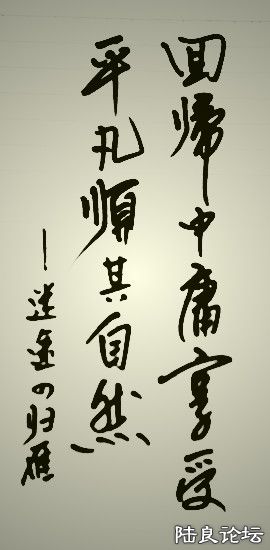 回帰中庸享受
平凡順其自然
—迷途の归雁
陆良论坛